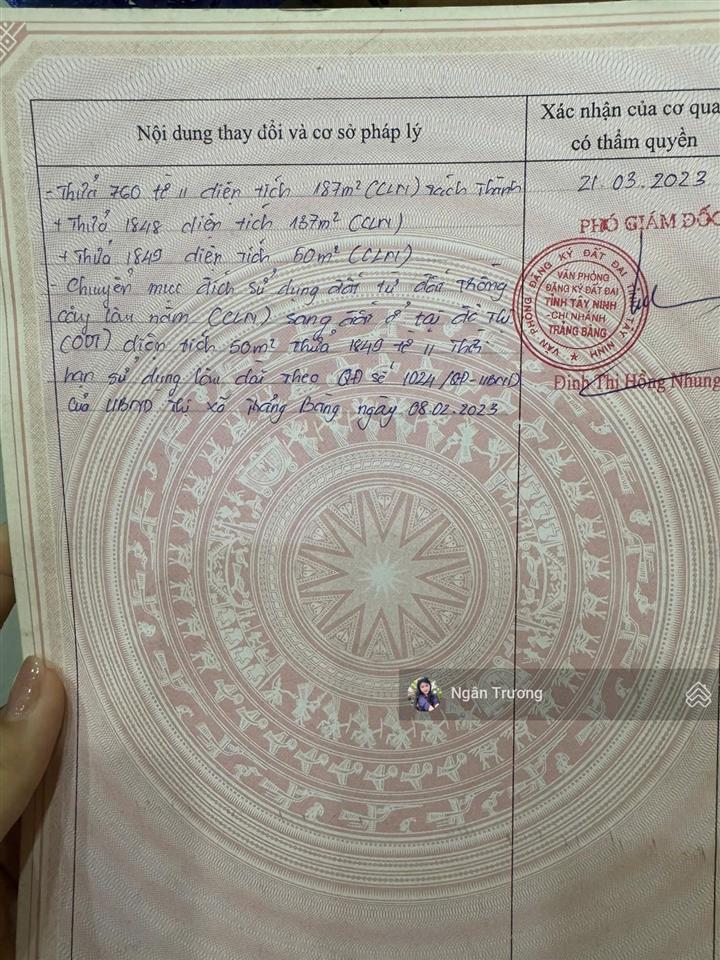 Nội dung thay đổi và cơ sở pháp lý
Xác nhận của cơ qua
có thẩm quyền
- Thửa 760 tờ 11 diện tích 187m² (CLN) tách thành
+ Thửa 1848 diện tích 137m² (CLN)
+ Thửa 1849 diện tích 50m² (CLN)
- Chuyển mục đích sử dụng đất từ đất trồng
cây lâu năm (CLN) sang đất ở tại đô thị
(ODT) diện tích 50m² thửa 1849 tờ 11 Thời
hạn sử dụng lâu dài theo QĐ số 1024/QĐ-UBND
của UBND thị xã Trảng Bàng ngày 08.02.2023
21.03.2023
PHÓ GIÁM ĐỐC
VĂN PHÒNG ĐĂNG KÝ ĐẤT ĐAI TỈNH TÂY NINH
VĂN PHÒNG
ĐĂNG KÝ ĐẤT ĐAI
TỈNH TÂY NINH
-CHI NHÁNH
TRẢNG BÀNG
Đinh Thị Hồng Nhung
Ngân Trương